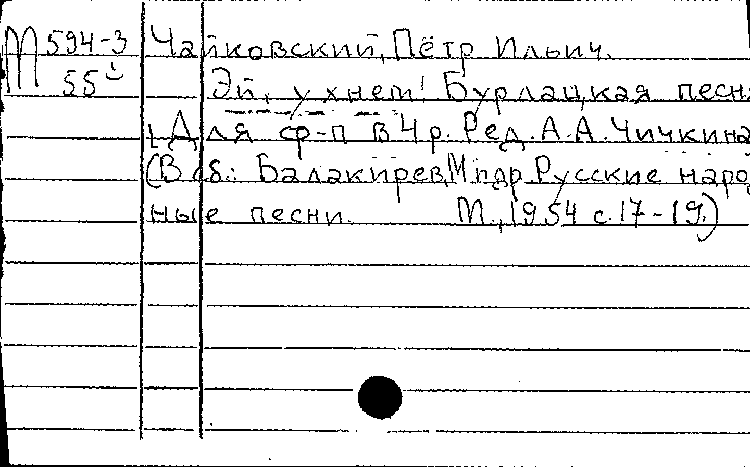 М 594-3 Чайковский, Пётр Ильич.
55 Эй, ухнем! Бурлацкая песн
Для ф-п в 4 р. Ред. А. А. Чичкина
(В сб.: Балакирев, М. и др. Русские народ
ные песни. М., 1954 с. 17-19.)